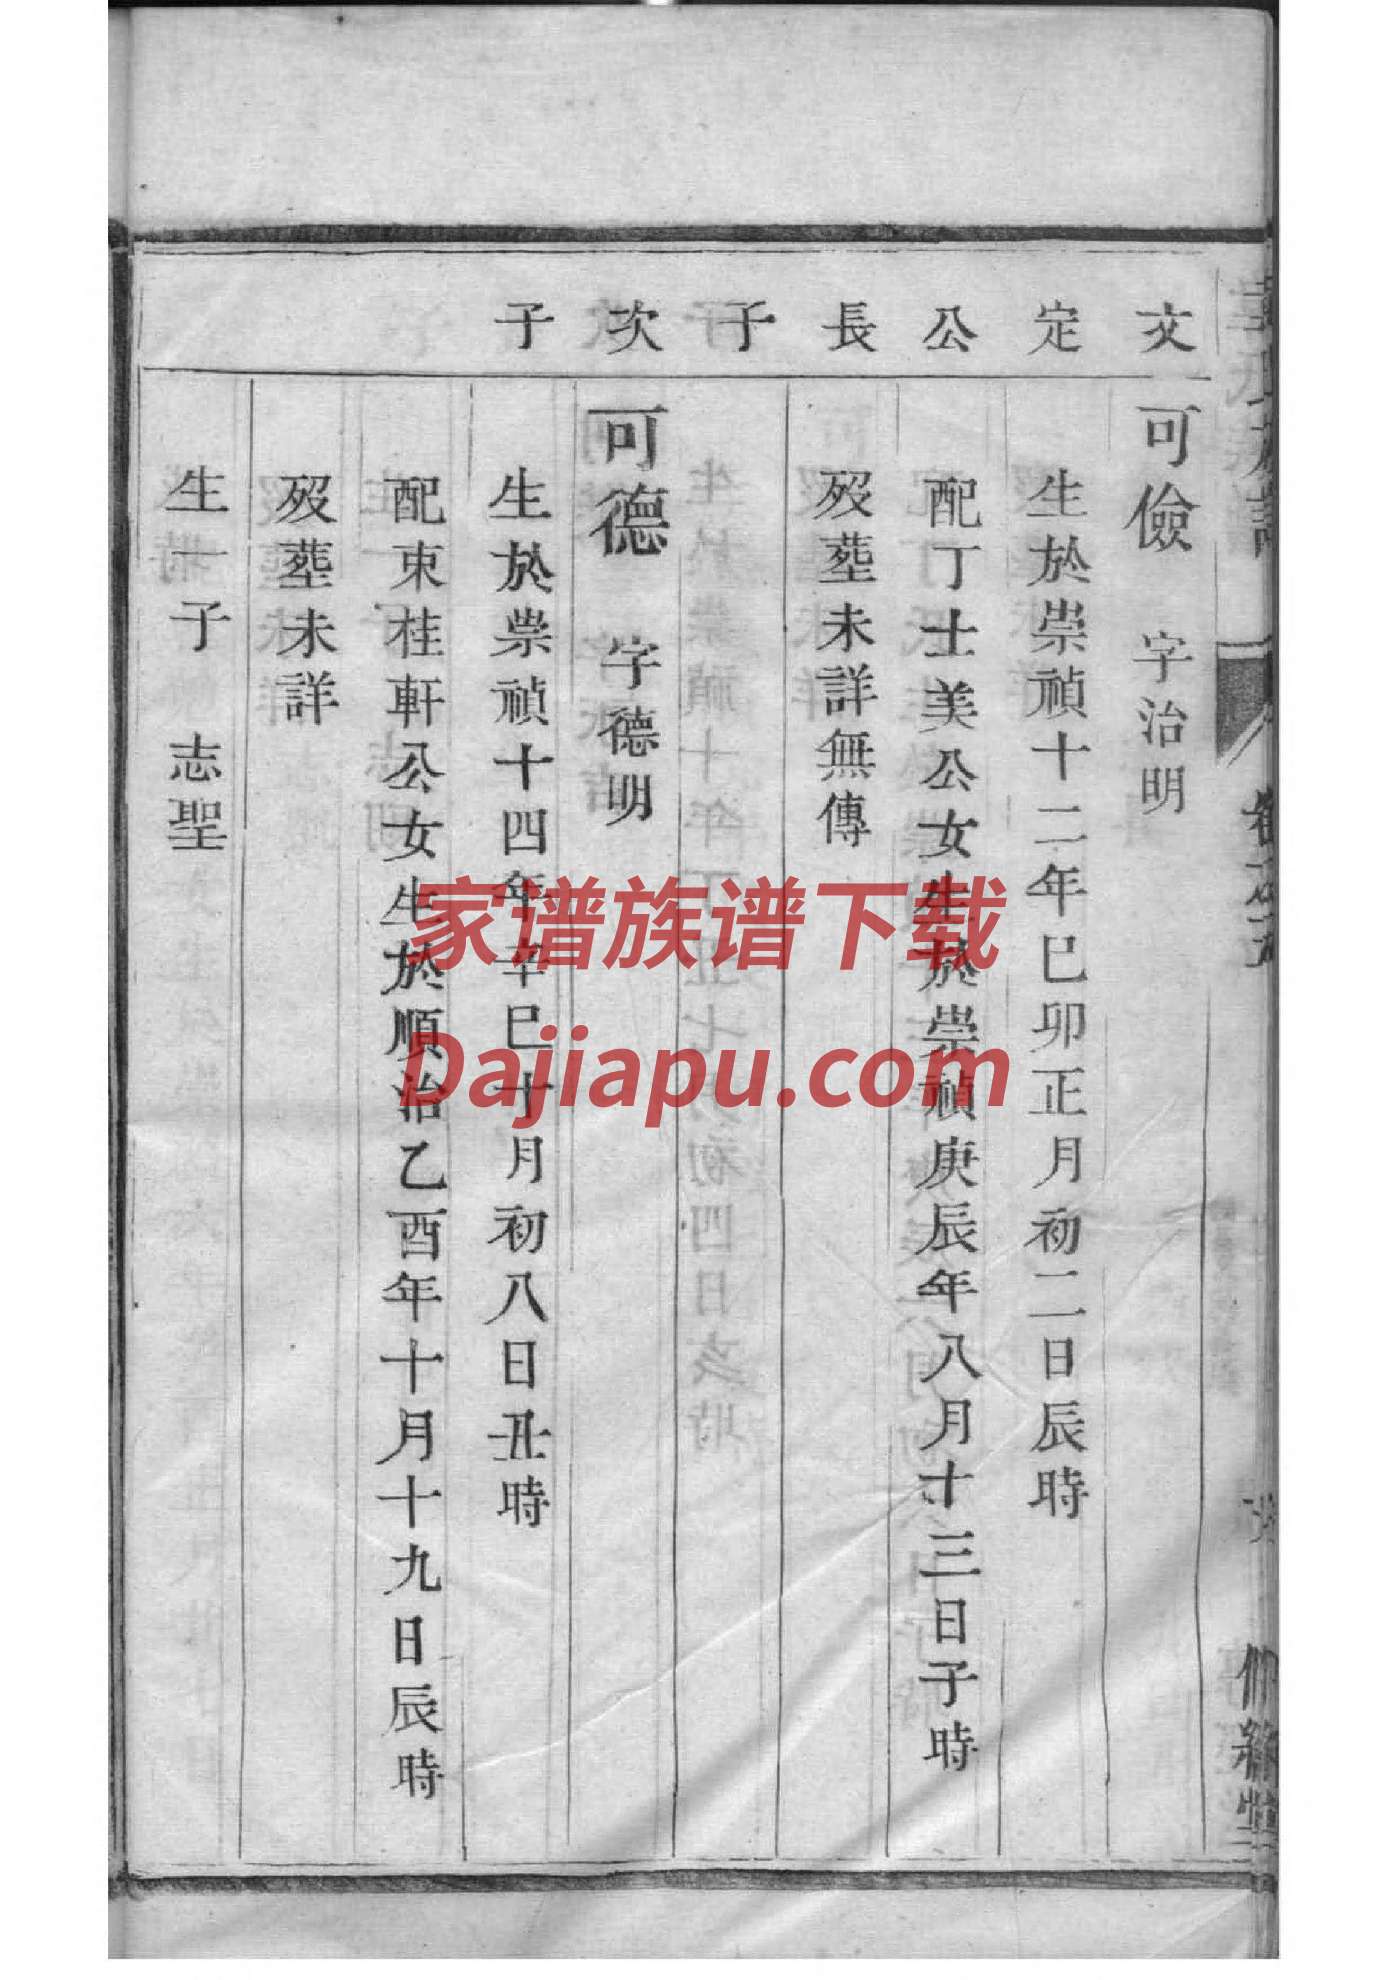 文定公長子次子
可儉 字治明
生於崇禎十二年巳卯正月初二日辰時
配丁士美公女生於崇禎庚辰年八月十三日子時
歿葬未詳無傳
可德 字德明
生於崇禎十四年辛巳十月初八日丑時
配束桂軒公女生於順治乙酉年十月十九日辰時
歿葬未詳
生一子 志聖
家谱族谱下载
Dajiapu.com